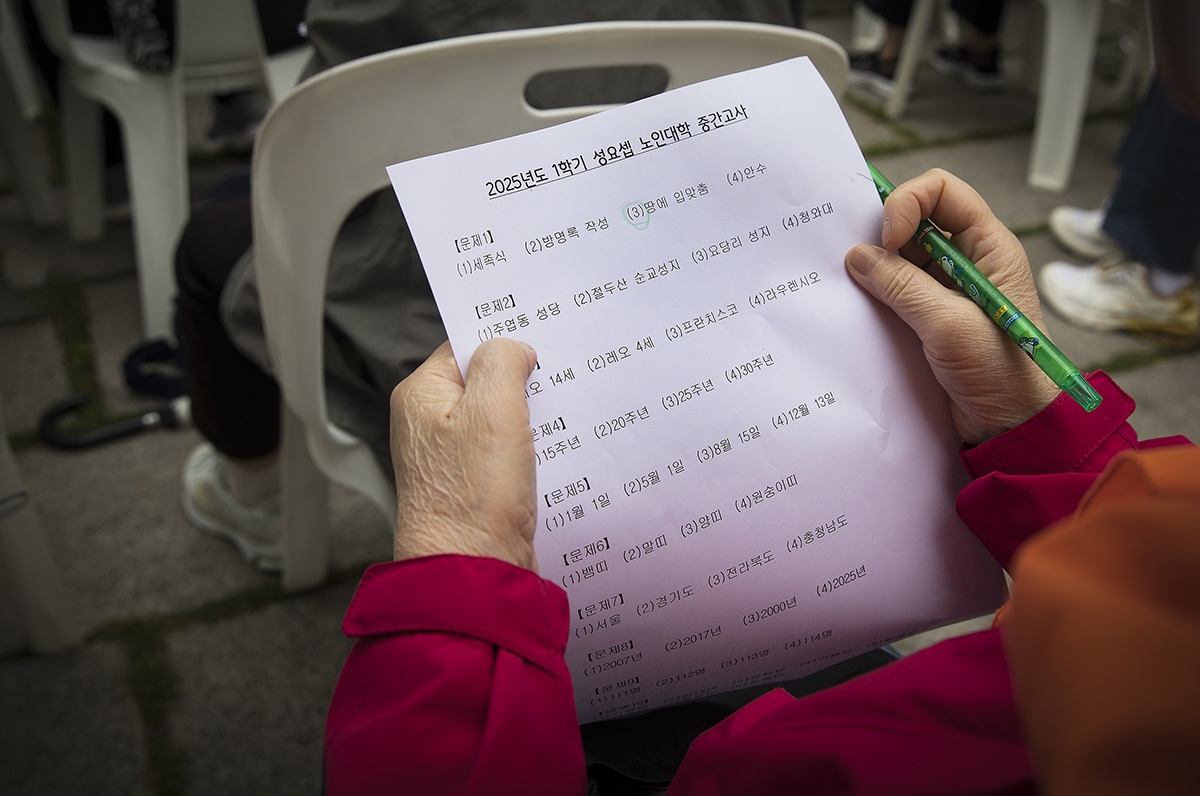 2025년도 1학기 성요셉 노인대학 중간고사
【문제1】
(1)세족식 (2)방명록 작성 (3)땅에 입맞춤 (4)안수
【문제2】
(1)주엽동 성당 (2)절두산 순교성지 (3)요당리 성지 (4)청와대
오 14세 (2)레오 4세 (3)프란치스코 (4)라우렌시오
문제4】
)15주년 (2)20주년 (3)25주년 (4)30주년
【문제5】
(1)1월 1일 (2)5월 1일 (3)8월 15일 (4)12월 13일
【문제6】
(1)뱀띠 (2)말띠 (3)양띠 (4)원숭이띠
【문제7】
(1)서울 (2)경기도 (3)전라북도 (4)충청남도
【문제8】
(1)2007년 (2)2017년 (3)2000년 (4)2025년
【문제9】
(1)111명 (2)112명 (3)113명 (4)114명